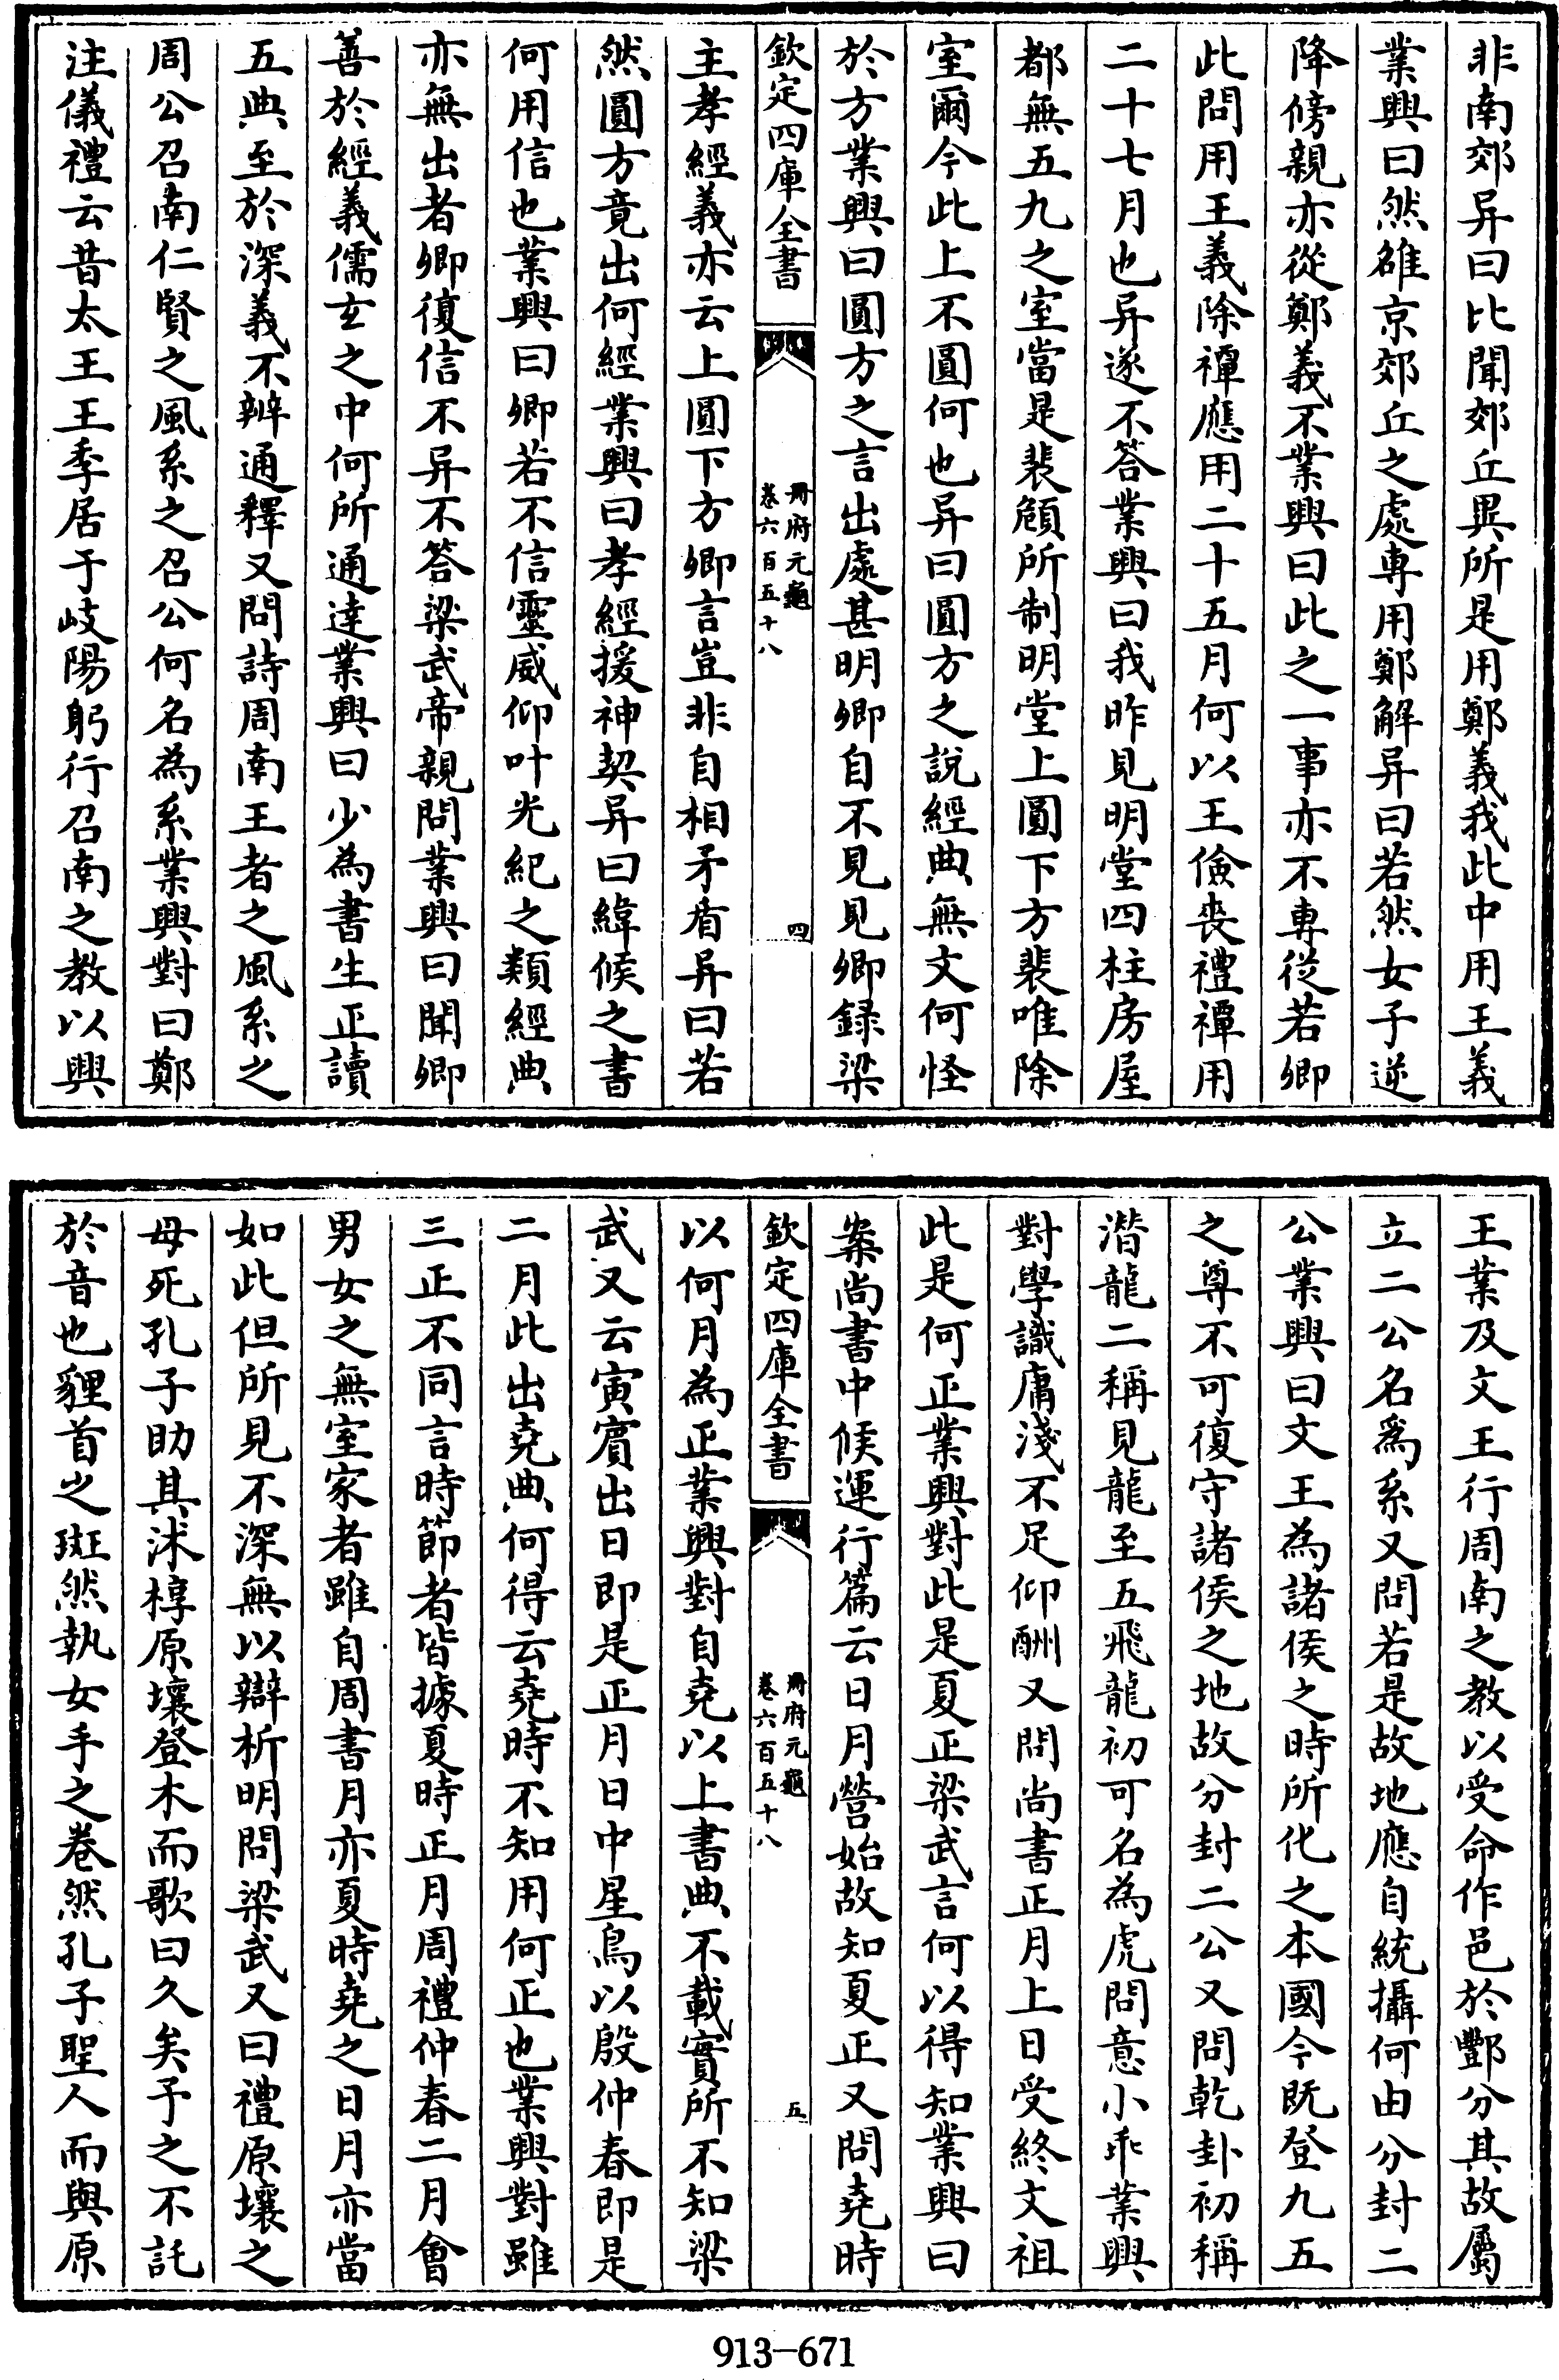 非南郊异曰比聞郊丘異所是用鄭義我此中用王義
業興曰然雒京郊丘之處專用鄭解异曰若然女子逆
降傍親亦從鄭義不業興曰此之一事亦不專從若卿
此問用王義除禫應用二十五月何以王儉喪禮禫用
二十七月也异遂不答業興曰我昨見明堂四柱房屋
都無五九之室當是裴頠所制明堂上圓下方裴唯除
室爾今此上不圓何也异曰圓方之說經典無文何怪
於方業興曰圓方之言出處甚明卿自不見見卿録梁
欽定四庫全書
冊府元龜
卷六百五十八
四
主孝經義亦云上圓下方卿言豈非自相矛盾异曰若
然圓方竟出何經業興曰孝經援神契异曰緯候之書
何用信也業興曰卿若不信靈威仰叶光紀之類經典
亦無出者卿復信不异不答梁武帝親問業興曰聞卿
善於經義儒玄之中何所通達業興曰少為書生正讀
五典至於深義不辨通釋又問詩周南王者之風系之
周公召南仁賢之風系之召公何名為系業興對曰鄭
注儀禮云昔太王王季居于岐陽躬行召南之教以興
王業及文王行周南之教以受命作邑於酆分其故屬
立二公名為系又問若是故地應自統攝何由分封二
公業興曰文王為諸侯之時所化之本國今既登九五
之尊不可復守諸侯之地故分封二公又問乾卦初稱
潜龍二稱見龍至五飛龍初可名為虎問意小乖業興
對學識庸淺不足仰酬又問尚書正月上日受終文祖
此是何正業興對此是夏正梁武言何以得知業興曰
案尚書中候運行篇云日月營始故知夏正又問堯時
欽定四庫全書
冊府元龜
卷六百五十八
五
以何月為正業興對自堯以上書典不載實所不知梁
武又云寅賓出日即是正月日中星鳥以殷仲春即是
二月此出堯典何得云堯時不知用何正也業興對雖
三正不同言時節者皆據夏時正月周禮仲春二月會
男女之無室家者雖自周書月亦夏時堯之日月亦當
如此但所見不深無以辯析明問梁武又曰禮原壤之
母死孔子助其沐椁原壤登木而歌曰久矣予之不託
於音也貍首之斑然執女手之卷然孔子聖人而與原
913-671